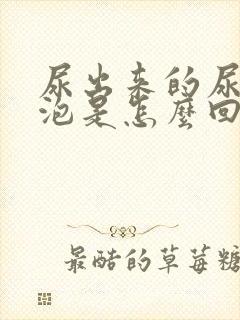 尿出来的尿
泡是怎麼回
最酷的草莓糖